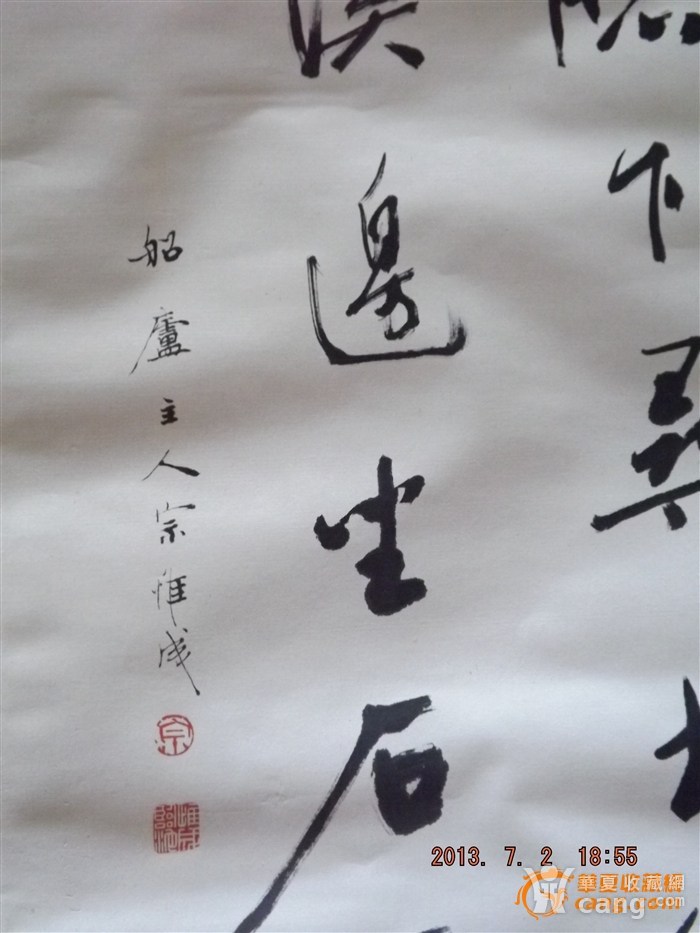 下尋
邊坐石
船廬主人宗惟成
宗
2013. 7. 2 18:55
華夏收藏網
cang.com